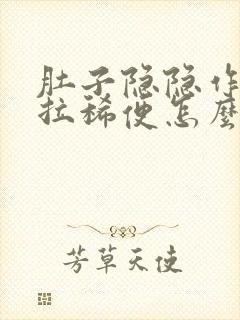 肚子隐隐作
拉稀便怎麽
芳草天使